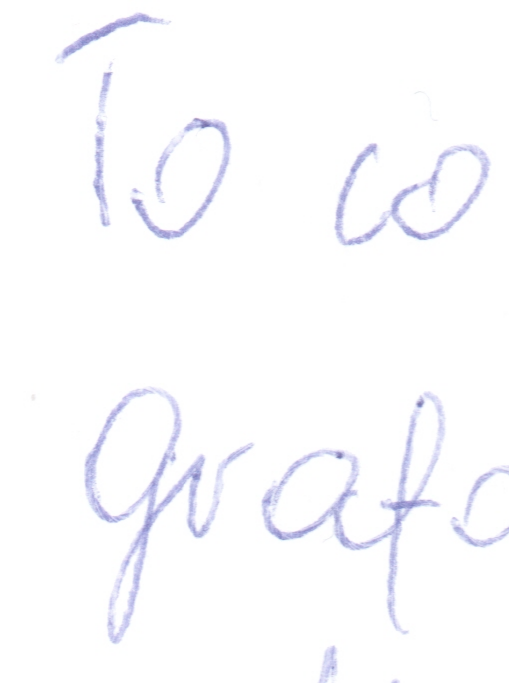 To co
grafo